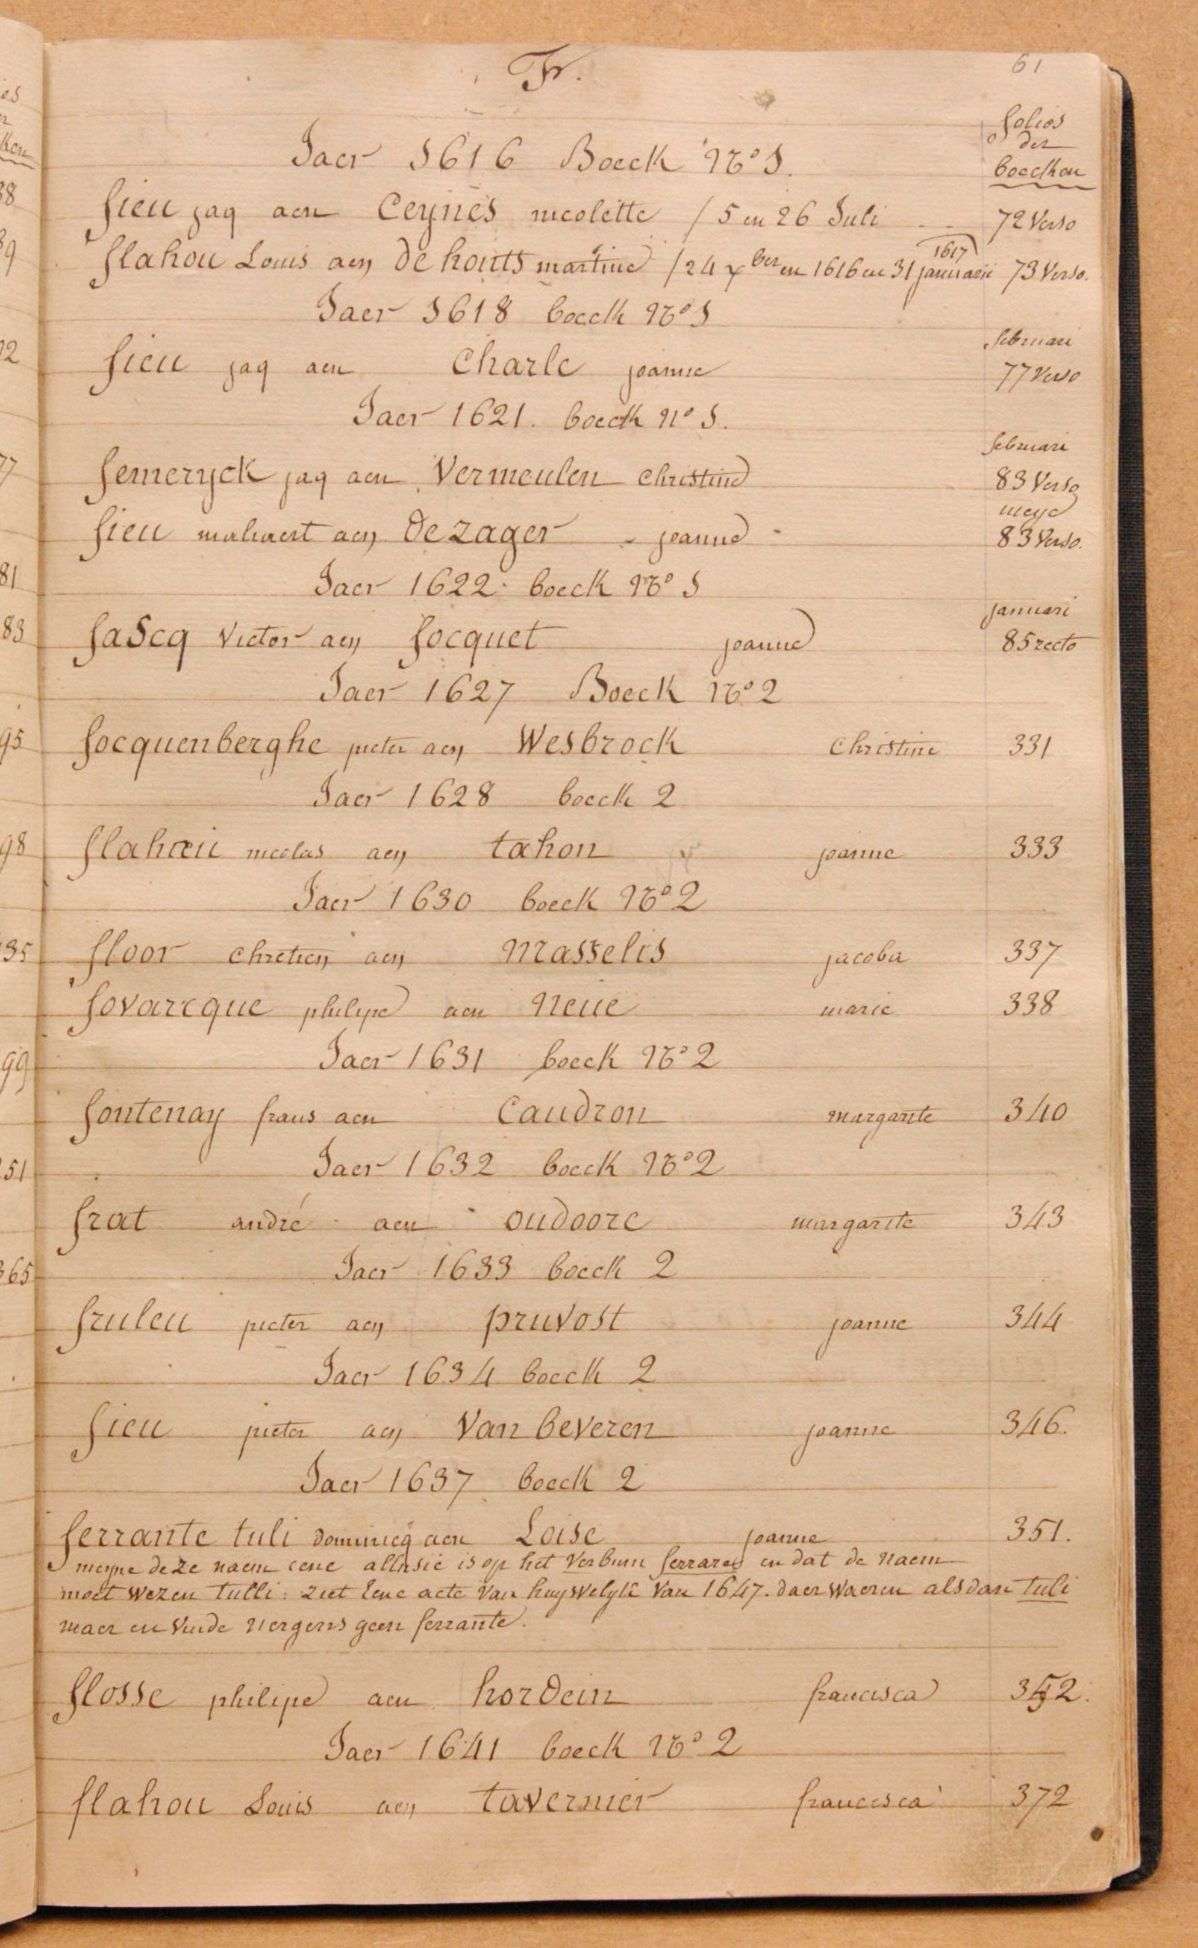 61
Fr.
folios
der
boecken
Jaer 1616 Boeck No 1.
fieu jaq aen Ceynes nicolette / 5 en 26 Juli 72 Verso
1617
flahou Louis aen De honts martine / 24 xber en 1616 en 31 januarii 73 Verso.
Jaer 1618 boeck No 1
februari
fieu jaq aen Charle joanne 77 Verso
Jaer 1621. boeck no 1.
februari
femeryck jaq aen Vermeulen christine 83 Verso
meye
fieu aen De zager joanne 83 Verso.
Jaer 1622. boeck No 1
januari
fascq Victor aen focquet joanne 85 recto
Jaer 1627 Boeck No 2
focquenberghe pieter aen Wesbrock christine 331
Jaer 1628 boeck 2
flahau nicolas aen tahon joanne 333
Jaer 1630 boeck No 2
floor chretien aen Masselis jacoba 337
fovarcque philipe aen Neue marie 338
Jaer 1631 boeck No 2
fontenay frans aen Caudron margarite 340
Jaer 1632 boeck No 2
frat andré aen oudoore margarite 343
Jaer 1633 boeck 2
fruleu pieter aen pruvost joanne 344
Jaer 1634 boeck 2
fieu pieter aen Van beveren joanne 346.
Jaer 1637 boeck 2
ferrante tuli dominicq aen Loise joanne 351.
meyne deze naem eene allusie is op het Verbum ferrare en dat de naem
moet wezen tulli: ziet eene acte van huywelyk van 1647. daer waeren alsdan tuli
maer en vinde nergens geen ferrante.
flosse philipe aen hordein francisca 352.
Jaer 1641 boeck No 2
flahou Louis aen tavernier francisca 372